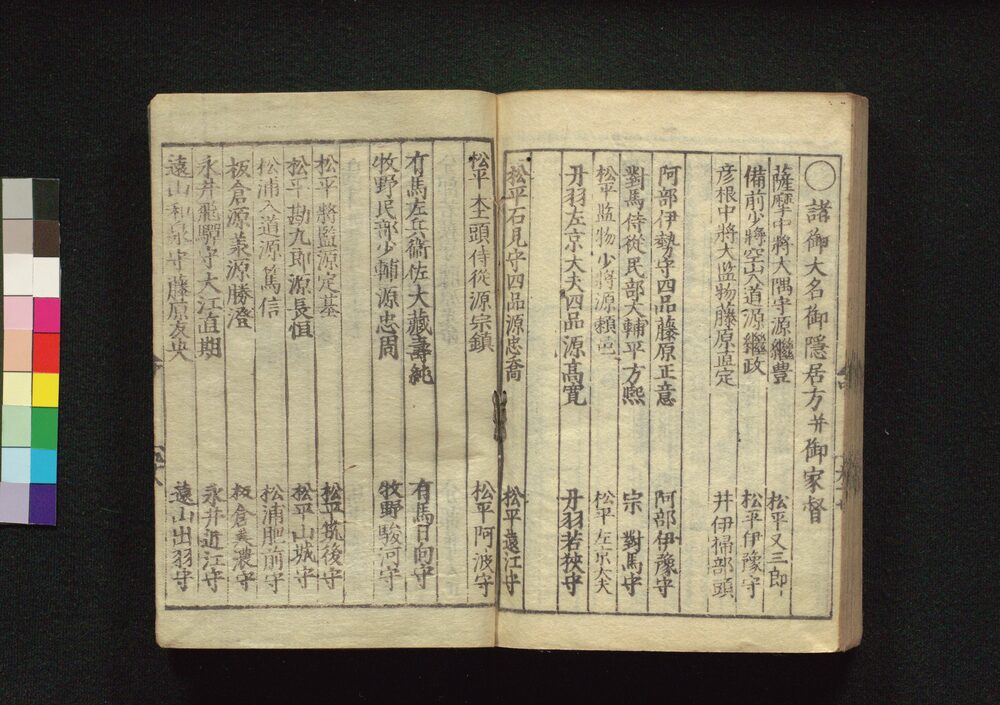 〇諸御大名御隠居方并御家督
薩摩中将大隅守源継豊 松平又三郎
備前少将空山道源継政 松平伊豫守
彦根中将大監物藤原直定 井伊掃部頭
阿部伊勢守四品藤原正意 阿部伊豫守
對馬侍従民部大輔平方熈 宗 對馬守
松平監物少将源頼邑 松平左京大夫
丹羽左京大夫四品源高寛 丹羽若狭守
松平石見守四品源忠喬 松平遠江守
松平杢頭侍従源宗鎮 松平阿波守
有馬左兵衞佐大蔵壽純 有馬日向守
牧野民部少輔源忠周 牧野駿河守
松平将監源定基 松平筑後守
松平勘九郎源長恒 松平山城守
松浦入道源篤信 松浦肥前守
板倉源兼源勝澄 板倉美濃守
永井飛騨守大江直期 永井近江守
遠山和泉守藤原友央 遠山出羽守